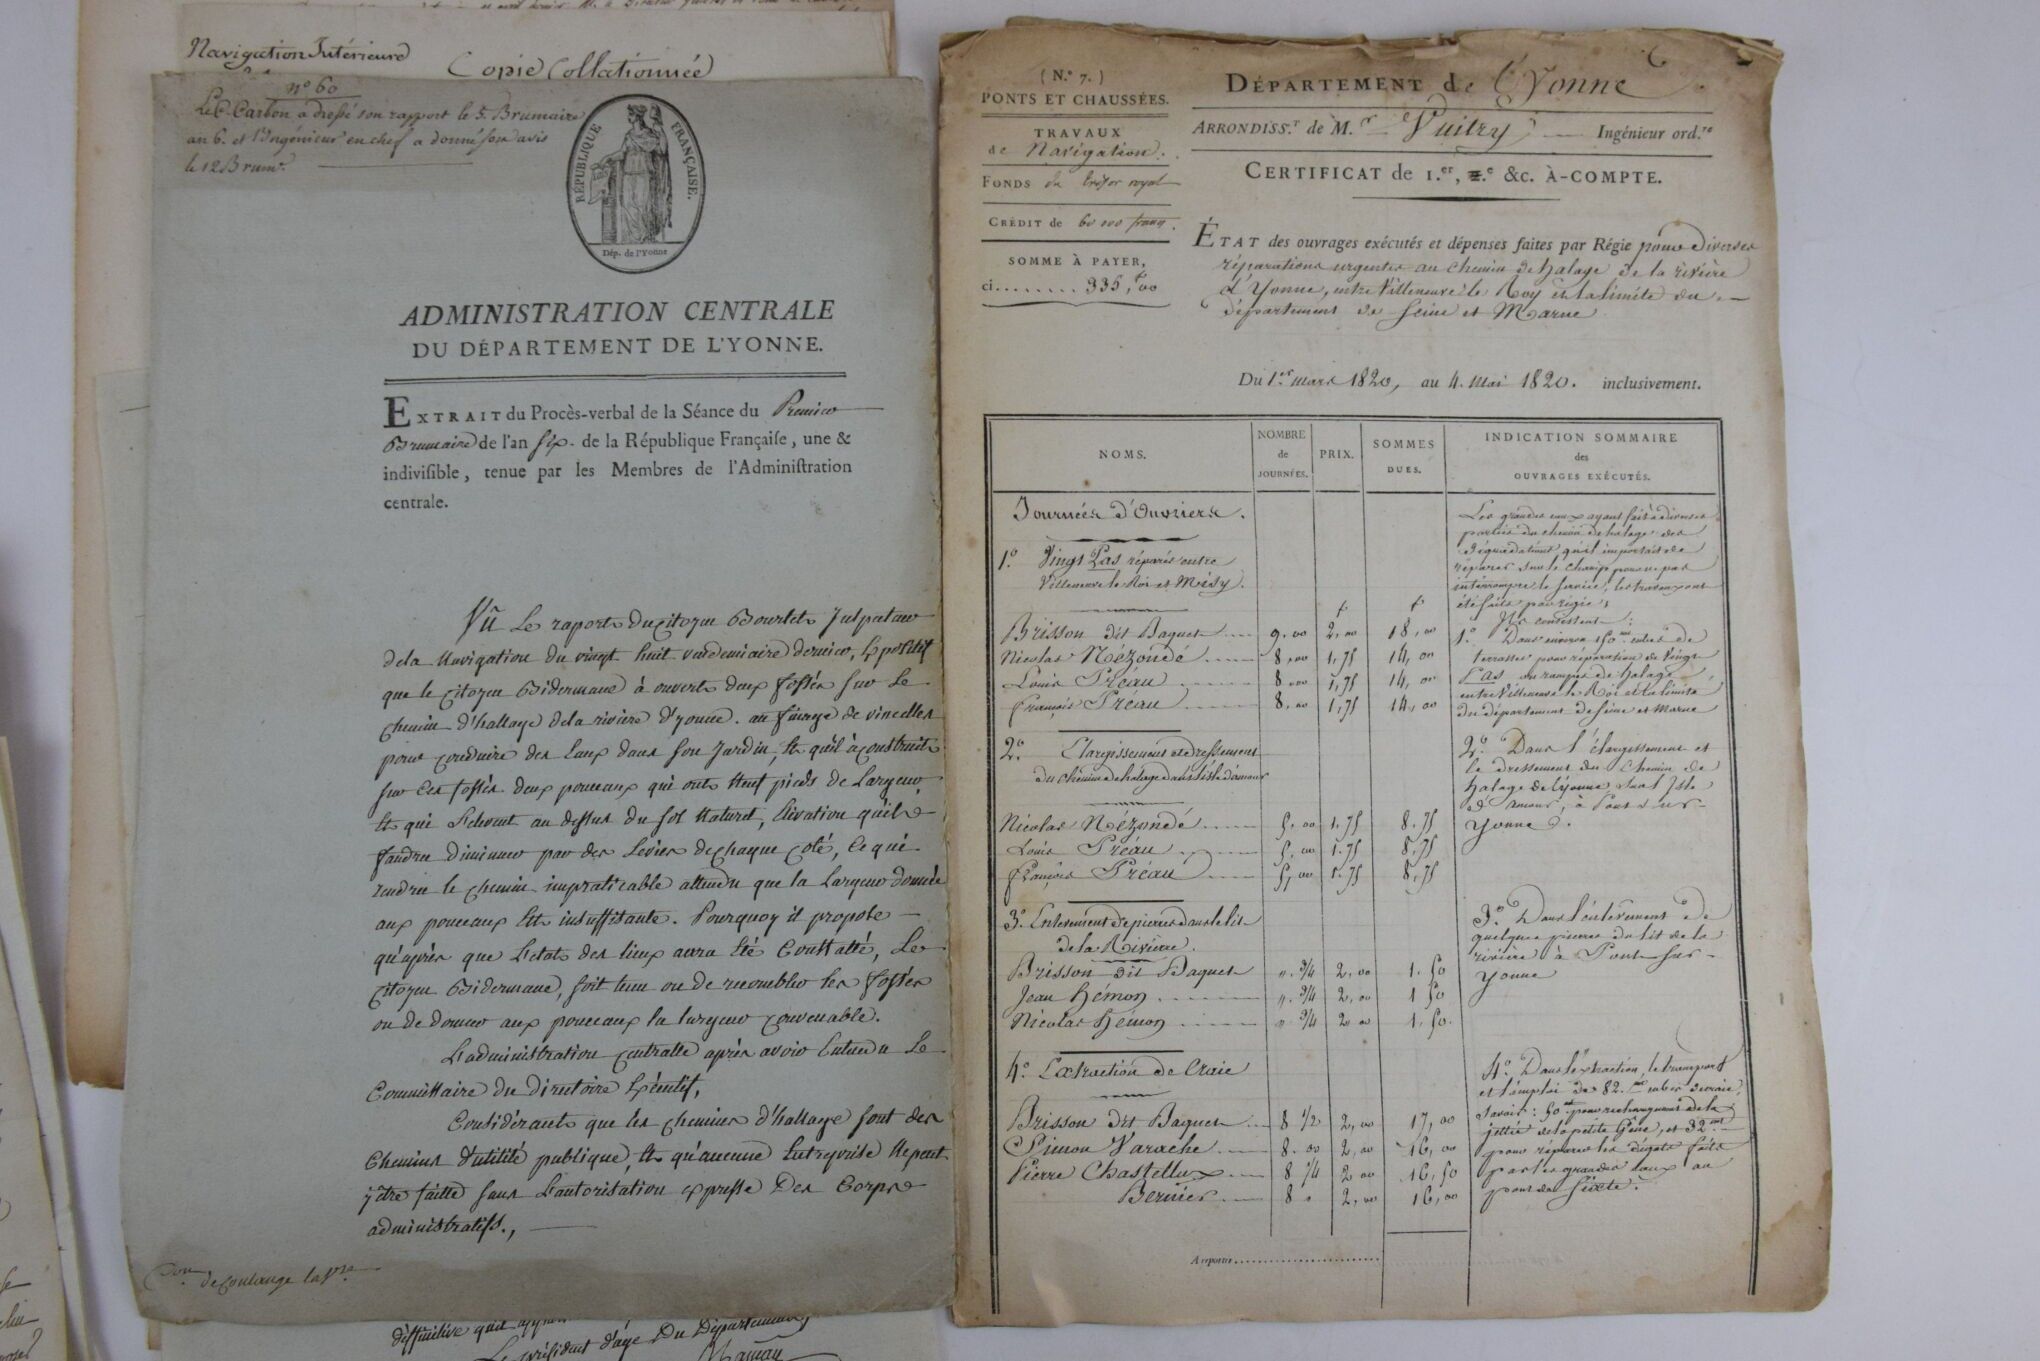 Navigation Intérieure
Copie Collationnée
n° 60
Le C. Carbon a dressé son rapport le 5. Brumaire
an 6. et l'Ingénieur en chef a donné son avis
le 12 Brum.
RÉPUBLIQUE FRANÇAISE.
Dép. de l'Yonne
ADMINISTRATION CENTRALE
DU DÉPARTEMENT DE L'YONNE.
EXTRAIT du Procès-verbal de la Séance du Premier
Brumaire de l'an six. de la République Françaiſe, une &
indiviſible, tenue par les Membres de l'Adminiſtration
centrale.
Vû Le raport du citoyen Bourlet
dela Navigation du vingt huit vendemiaire dernier, Expositif
que le citoyen Bidermane à ouvert deux fossés sur Le
chemin d'hallage dela riviere d'yonne. au finage de vincelles
pour conduire des Eaux dans son Jardin, Et qu'il à construit
sur ces fossés deux ponceaux qui ont Neuf pieds de Largeur,
Et qui s'elevent au dessus du sol Naturel, Elévation qu'il
faudra diminuer par des Levées de chaque coté, ce qui
rendra le chemin impraticable attendu que la Largeur donnée
aux ponceaux Est insuffisante. Pourquoy il propose
qu'après que L'etat des lieux aura Eté Constatté, Le
Citoyen Bidermane, soit tenu ou de recombler les fossés
ou de donner aux ponceaux la largeur convenable.
L'administration centralle après avoir Entendu Le
Commissaire du directoire Exécutif,
Considérant que les chemins d'hallage sont des
Chemins d'utilité publique, Et qu'aucune Entreprise Ne peut
y être faitte sans L'autorisation expresse Des Corps
administratifs.,
Con de Coulange la Vse
deffinitive
Le président d'age Du Département,
(N.° 7.)
PONTS ET CHAUSSÉES.
TRAVAUX
de Navigation.
FONDS du trésor royal
CRÉDIT de 60 000 francs.
SOMME À PAYER,
ci........ 335,f00
DÉPARTEMENT de l'Yonne
ARRONDISS.T de M.r Vuitry Ingénieur ord.re
CERTIFICAT de 1.er, 2.e &c. À-COMPTE.
ÉTAT des ouvrages exécutés et dépenses faites par Régie pour Diverses
réparations urgentes au chemin de halage de la rivière
d'Yonne, entre Villeneuve le Roy et la limite du
département de Seine et Marne
Du 1.er mars 1820, au 4. Mai 1820. inclusivement.
NOMS. NOMBRE de JOURNÉES. PRIX. SOMMES DUES. INDICATION SOMMAIRE des OUVRAGES EXÉCUTÉS.
Journées d'Ouvriers.
Les grandes eaux ayant fait à diverses
parties du chemin de halage des
dégradations qu'il importait de
réparer sur le champ pour ne pas
interrompre le service, les travaux ont
été faits par régie;
1° Vingt Pas réparés entre
Villeneuve le Roi et Misy.
f f
Ils consistent:
Brisson dit Baquet 9,00 2,00 18,00
Nicolas Nézondé 8,00 1,75 14,00
Louis Préau 8,00 1,75 14,00
François Préau 8,00 1,75 14,00
1.° Dans environ 150 m cubes de
terrasses pour réparation de Vingt
Pas ou rampes de halage
entre Villeneuve le Roi et la limite
du département de Seine et Marne
2.° Elargissement et dressement
du chemin de halage dans l'isle d'amour
Nicolas Nézondé 5,00 1.75 8.75
Louis Préau 5,00 1.75 8.75
François Préau 5,00 1.75 8,75
2.° Dans l'élargissement et
le dressement du chemin de
halage de l'yonne dans l'Isle
d'amour, à Pont sur
Yonne.
3° Enlevement de pierres dans le lit
de la Rivière.
Brisson dit Baquet ,, 3/4 2,00 1.50
Jean Hémon ,, 3/4 2,00 1 50
Nicolas Hémon ,, 3/4 2,00 1.50
3.° Dans l'enlevement de
quelques pierres du lit de la
rivière à Pont sur
Yonne
4° Extraction de Craie
Brisson dit Baquet 8 1/2 2,00 17,00
Simon Varache 8.00 2,00 16,00
Pierre Chastellux 8 1/4 2 00 16,50
Bernier 8 2,00 16,00
4.° Dans l'extraction, le transport
et l'emploi de 82. m cubes de craie,
savoir: 50 m pour rechargement de la
jettée de la petite Gêne, et 32 m
pour réparer les dégats faits
par les grandes Eaux au
A reporter